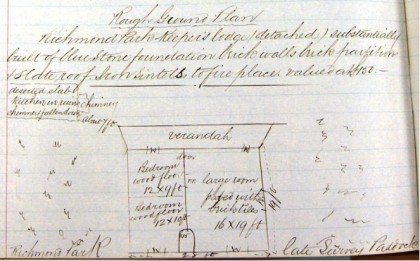 Rough Ground Plan
Richmond Park Keepers lodge (detached) substantially
built of blue Stone foundation brick walls brick partition
& Slate roof. Iron lintels to fire places valued at £450.-
decayed slab
Kitchen in ruins
chimney fallen down
chimney
about 7ft
verandah
W
W
door
Bedroom
wood floor
12 x 9ft
or large room
paved with
brick tiles
16 x 19ft
19ft
Bedroom
wood floor
12 x 10ft
Richmond Park
late Survey Paddock